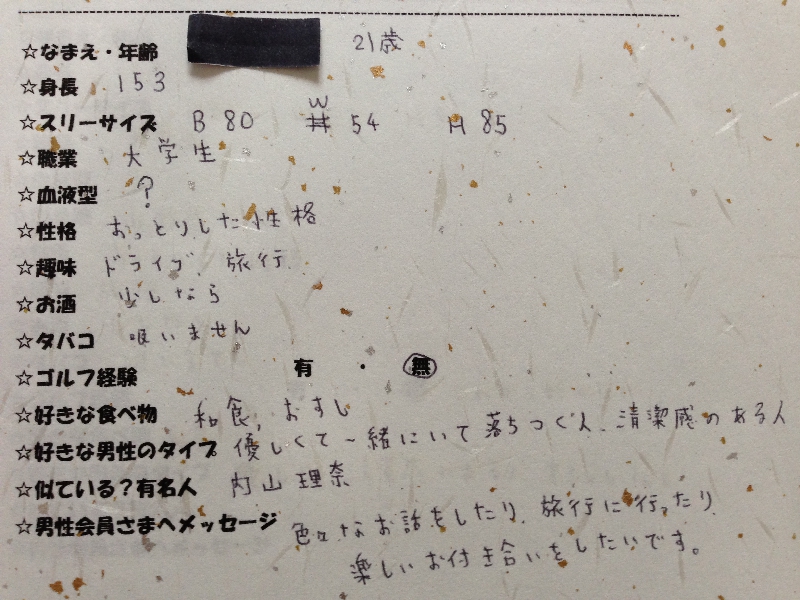 ☆なまえ・年齢 21歳
☆身長 153
☆スリーサイズ B 80 W 54 H 85
☆職業 大学生
☆血液型 ?
☆性格 おっとりした性格
☆趣味 ドライブ、旅行
☆お酒 少しなら
☆タバコ 吸いません
☆ゴルフ経験 有・無
☆好きな食べ物 和食、おすし
☆好きな男性のタイプ 優しくて一緒にいて落ちつく人、清潔感のある人
☆似ている?有名人 内山理奈
☆男性会員さまへメッセージ 色々なお話をしたり、旅行に行ったり、
楽しいお付き合いをしたいです。